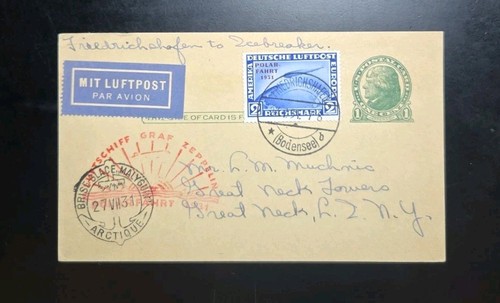 Friedrichshafen to Icebreaker.
MIT LUFTPOST
PAR AVION
DEUTSCHE LUFTPOST
POLAR-
FAHRT
1931
AMERIKA
EUROPA
2 REICHSMARK 2
FRIEDRICHSHAFEN
(Bodensee) d
U.S. POSTAL CARD
1 CENT 1
OF CARD IS F
LUFTSCHIFF GRAF ZEPPELIN
FAHRT 1931
BRISE-GLACE "MALYGUINE"
27 VII 31
ARCTIQUE
Mr. L. M. Muchnic
Great Neck Towers
Great Neck, L. I. N. Y.